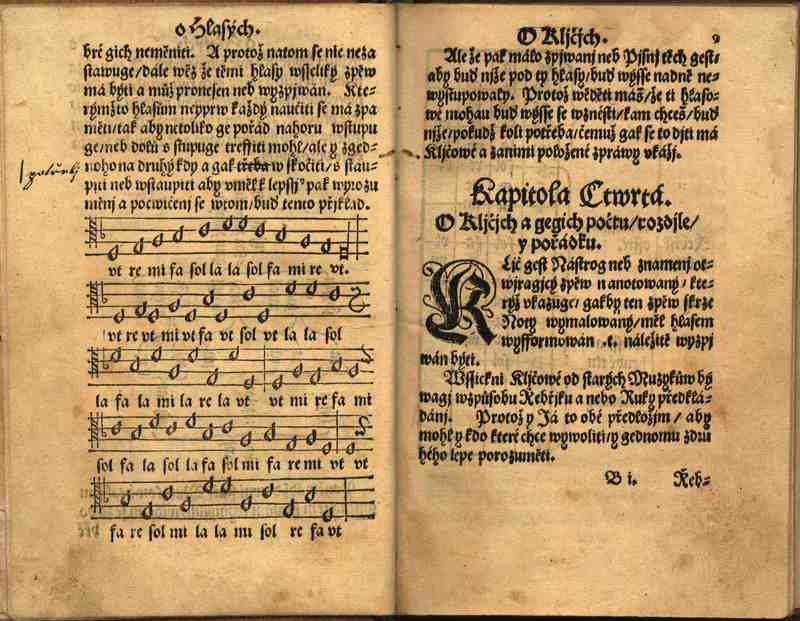 o Hlasých.
bré gich neměniti. A protož natom se nic neza
stawuge/dále wěz že těmi hlasy wsseliký zpěw
má býti a můž pronesen neb wyzpjwán. Kte-
rýmžto hlasům neyprw každý naučiti se má zpa
měti/tak aby netoliko ge pořád nahoru wstupu
ge/neb dolů s stupuge treffiti mohl/ale y zged-
noho na druhý kdy a gak třeba w skočiti/s stau-
piti neb wstaupiti aby uměl k lepssjº pak wyrozu
měnj a pocwičenj se wtom/bud tento přjklad.
vt re mi fa sol la la sol fa mi re vt.
vt re vt mi vt fa vt sol vt la la sol
la fa la mi la re la vt vt mi re fa mi
sol fa la sol la fa sol mi fa re mi vt vt
fa re sol mi la la mi sol re fa vt
O Kljčjch. 9
Ale že pak málo zpjwanj neb Pjsnj těch gest/
aby bud njže pod ty hlasy/bud wýsse nadně ne-
wystupowaly. Protož wěděti máš/že ti hlaso-
wé mohau bud wýsse se wznésti/kam chceš/bud
njže/pokudž koli potřeba/čemuž gak se to djti má
Kljčowé a zanimi položené zpráwy vkážj.
Kapitola Čtwrtá.
O Kljčjch a gegich počtu/rozdjle/
y pořádku.
KLjč gest Nástrog neb znamenj ot-
wjragjcý zpěw n anotowaný/kte-
rýž vkazuge/gakby ten zpěw skrze
Noty wymalowaný/měl hlasem
wyfformowán .t. náležitě wyzpj
wán býti.
Wssickni Kljčowé od starých Muzyků w bý
wagj wzpůsobu Řebřjku a nebo Ruky předklá-
dáni. Protož y Já to obé předložjm/ aby
mohl y kdo které chce wywoliti/y gednomu zdru
hého lépe porozuměti.
B i. Řeb-